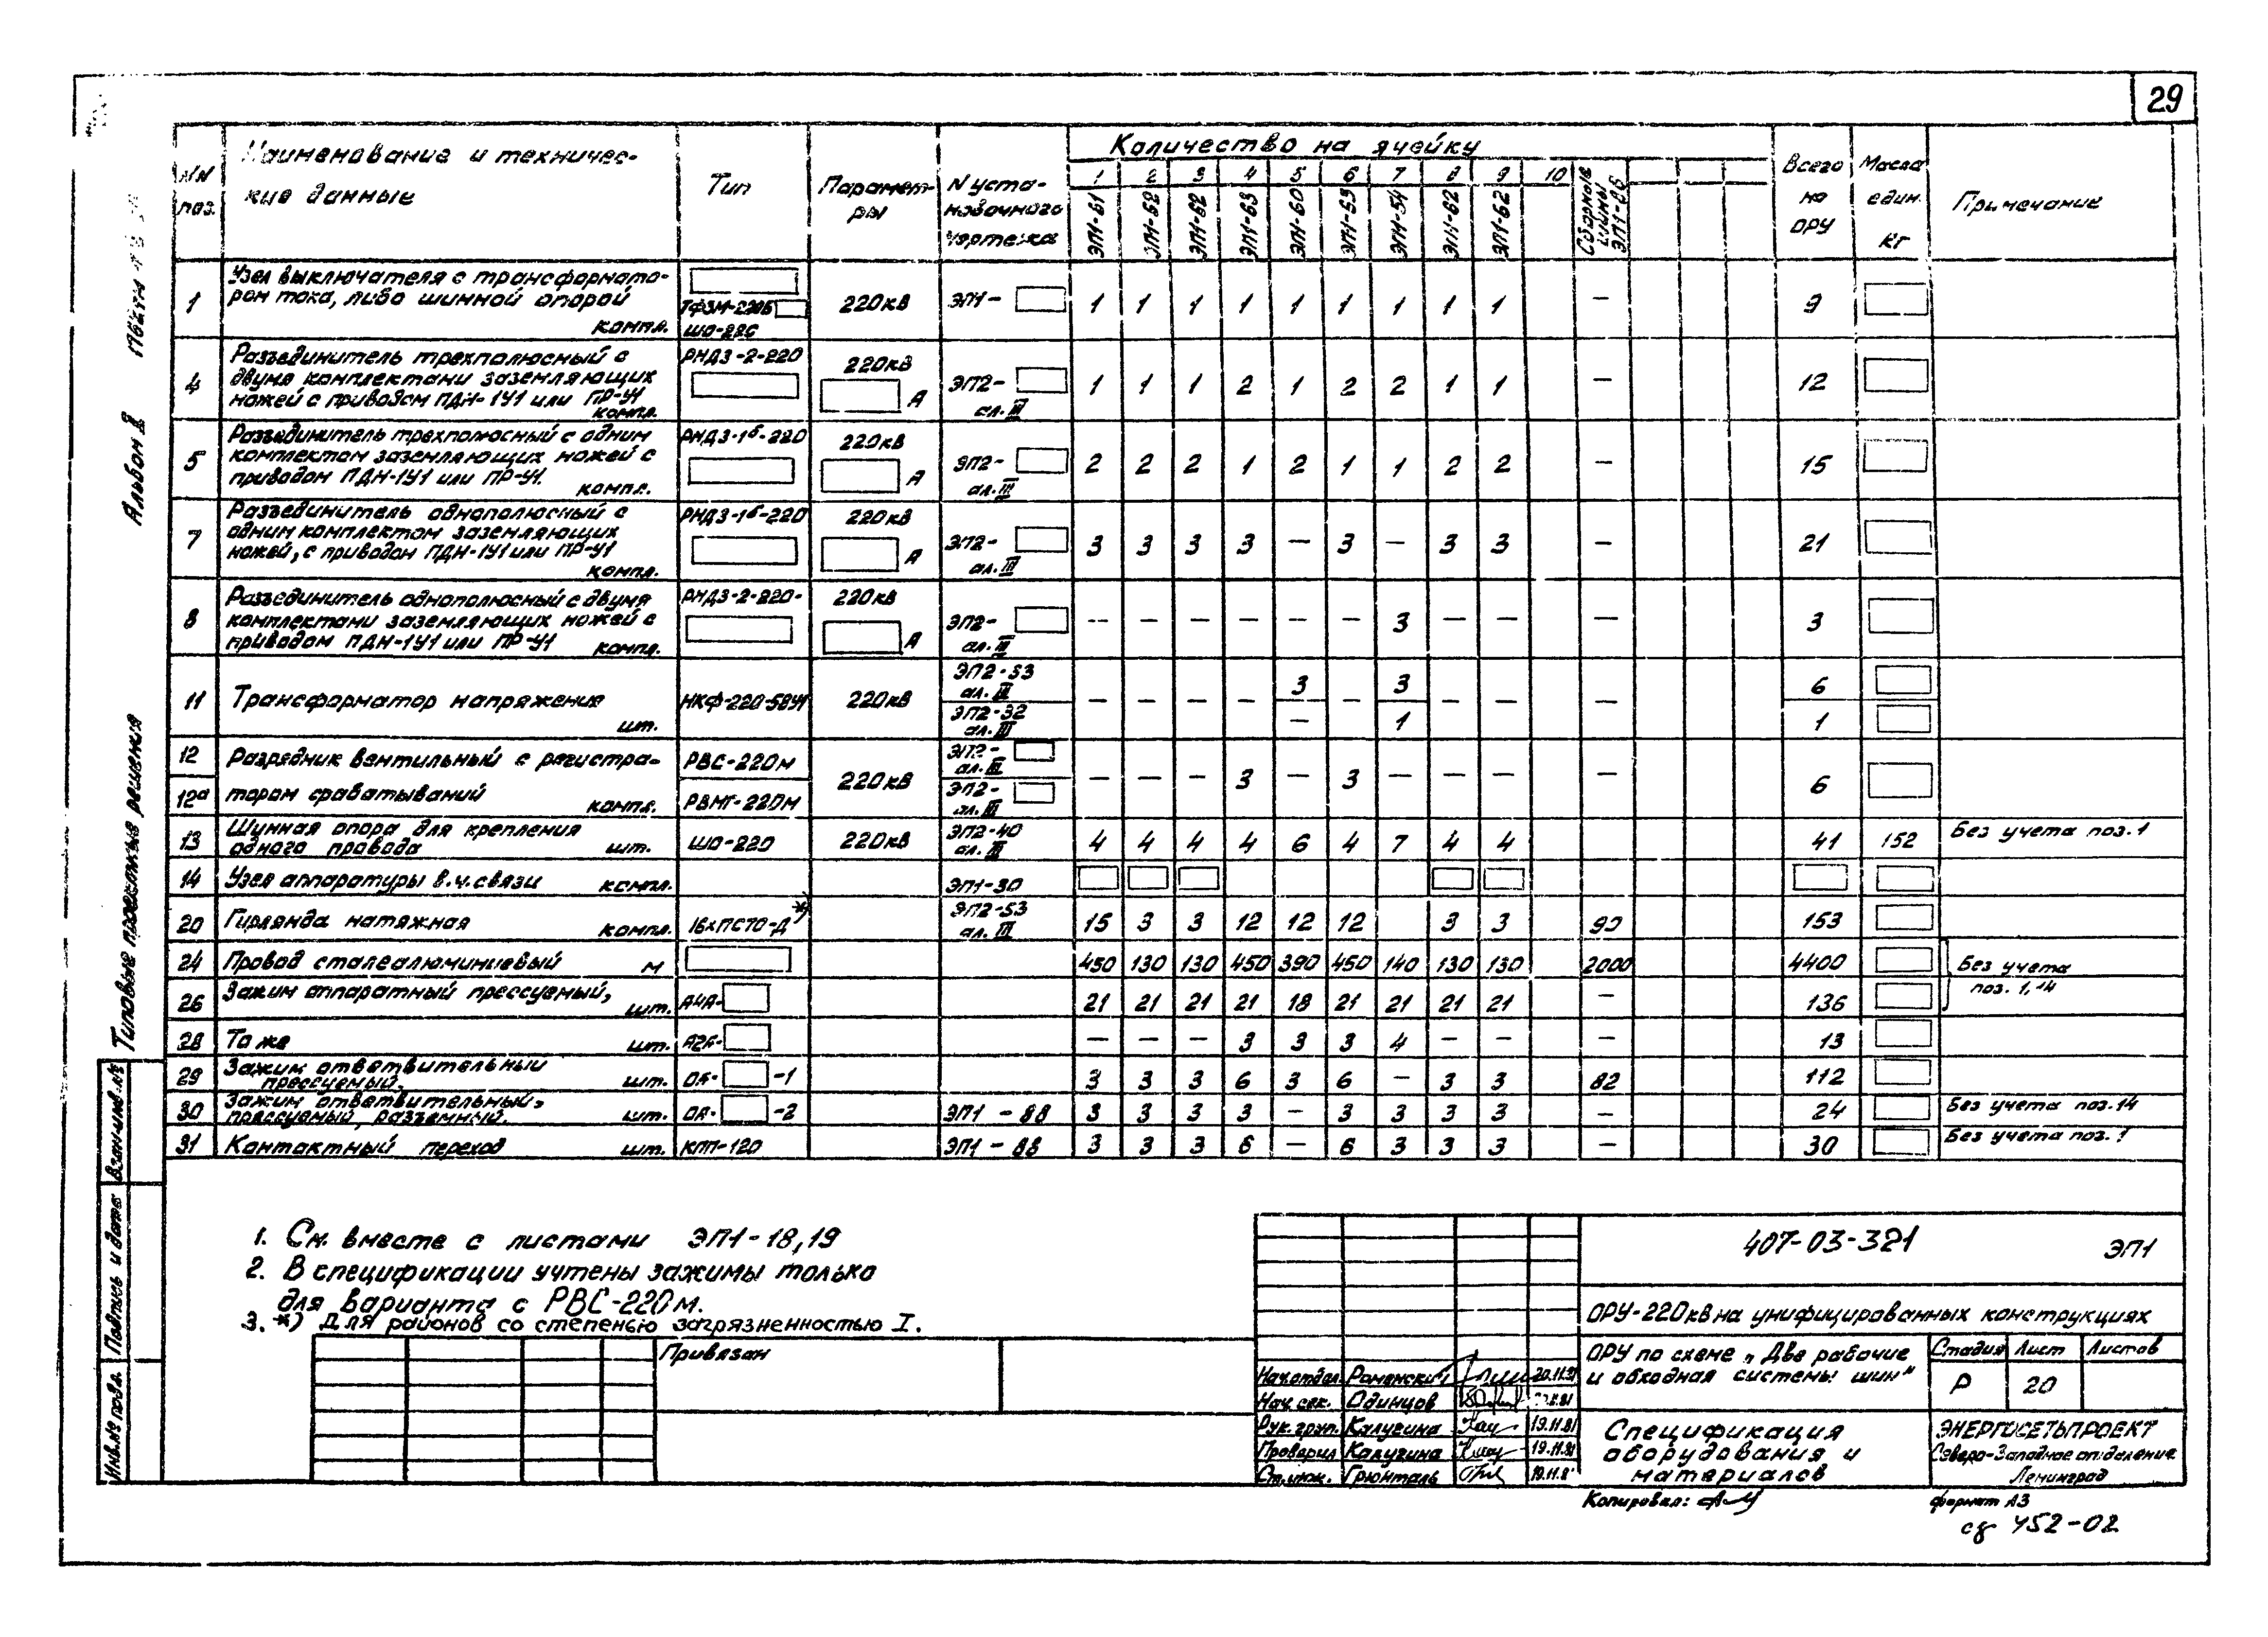 29
N/N поз.
Наименование и технические данные
Тип
Параметры
N установочного чертежа
Количество на ячейку
Всего на ОРУ
Масса един. кг
Примечание
1 2 3 4 5 6 7 8 9 10
ЭП1-61 ЭП1-62 ЭП1-62 ЭП1-63 ЭП1-60 ЭП1-63 ЭП1-54 ЭП1-62 ЭП1-62 Сборные шины
1 Узел выключателя с трансформато- 220кв ЭП1- 1 1 1 1 1 1 1 1 1 — 9
ром тока, либо шинной опорой ТФЗМ-220Б
компл. ШО-220
4 Разъединитель трехполюсный с РНДЗ-2-220 220кв
двумя комплектами заземляющих А ЭП2- 1 1 1 2 1 2 2 1 1 — 12
ножей с приводом ПДН-1У1 или ПР-У1 ал. III
компл.
5 Разъединитель трехполюсный с одним РНДЗ-1б-220 220кв
комплектом заземляющих ножей с А ЭП2- 2 2 2 1 2 1 1 2 2 — 15
приводом ПДН-1У1 или ПР-У1. компл. ал. III
7 Разъединитель однополюсный с РНДЗ-1б-220 220кв
одним комплектом заземляющих А ЭП2- 3 3 3 3 — 3 — 3 3 — 21
ножей, с приводом ПДН-1У1 или ПР-У1 ал. III
компл.
8 Разъединитель однополюсный с двумя РНДЗ-2-220- 220кв
комплектами заземляющих ножей с А ЭП2- — — — — — — 3 — — — 3
приводом ПДН-1У1 или ПР-У1 компл. ал. III
11 Трансформатор напряжения шт. НКФ-220-58У1 220кв
ЭП2-53 ал. III — — — — 3 — 3 — — — 6
ЭП2-32 ал. III — 1 1
12 Разрядник вентильный с регистра- РВС-220м 220кв ЭП2- ал. III — — — 3 — 3 — — — — 6
12а тором срабатываний компл. РВМГ-220М ЭП2- ал. III
13 Шинная опора для крепления
одного провода шт. ШО-220 220кв ЭП2-40 ал. III 4 4 4 4 6 4 7 4 4 41 152 Без учета поз. 1
14 Узел аппаратуры в.ч. связи компл. ЭП1-30
20 Гирлянда натяжная компл. 16хПС70-Д *) ЭП2-53 ал. III 15 3 3 12 12 12 3 3 90 153
24 Провод сталеалюминиевый м 450 130 130 450 390 450 140 130 130 2000 4400 Без учета
поз. 1, 14
26 Зажим аппаратный прессуемый, шт. А4А- 21 21 21 21 18 21 21 21 21 — 136
28 То же шт. А2А- — — — 3 3 3 4 — — — 13
29 Зажим ответвительный
прессуемый. шт. ОА- -1 3 3 3 6 3 6 — 3 3 82 112
30 Зажим ответвительный,
прессуемый, разъемный. шт. ОА- -2 ЭП1-88 3 3 3 3 — 3 3 3 3 — 24 Без учета поз. 14
31 Контактный переход шт. КПП-120 ЭП1-88 3 3 3 6 — 6 3 3 3 — 30 Без учета поз. 1
1. См. вместе с листами ЭП1-18,19
2. В спецификации учтены зажимы только
для варианта с РВС-220м.
3. *) Для районов со степенью загрязненностью I.
Привязан
407-03-321 ЭП1
ОРУ-220кв на унифицированных конструкциях
ОРУ по схеме „Две рабочие
и обходная системы шин"
Стадия Лист Листов
Р 20
Нач.отдел. Роменский 20.11.81
Нач. сек. Одинцов
Рук. груп. Калугина 19.11.81
Проверил Калугина 19.11.81
Ст.инж. Грюнталь
Спецификация
оборудования и
материалов
ЭНЕРГОСЕТЬПРОЕКТ
Северо-Западное отделение
Ленинград
Копировал:
формат А3
452-02
Типовые проектные решения
Альбом II
Инв.№ подл. Подпись и дата Взам.инв.№